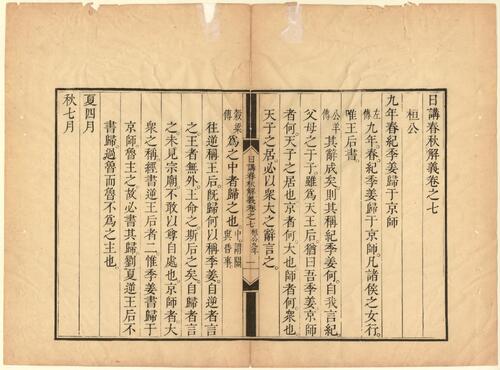 日講春秋解義卷之七
桓公
九年春紀季姜歸于京師
左傳九年春紀季姜歸于京師。凡諸侯之女行。
唯王后書
公羊傳其辭成矣。則其稱紀季姜何。自我言紀。
父母之于子。雖爲天王后。猶曰吾季姜。京師
者何。天子之居也。京者何。大也。師者何。衆也。
天子之居。必以衆大之辭言之。
日講春秋解義卷之七 桓公九年 一
穀梁傳爲之中者歸之也。中謂關與昏事。
往逆稱王后。旣歸何以稱季姜。自逆者言
之。王者無外。王命之。斯后之矣。自歸者言
之。未見宗廟。不敢以尊自處也。京師者。大
衆之稱。經書逆王后者二。惟季姜書歸于
京師。魯主之。故必書其歸。劉夏逆王后。不
書歸。過魯而魯不爲之主也。
夏四月
秋七月